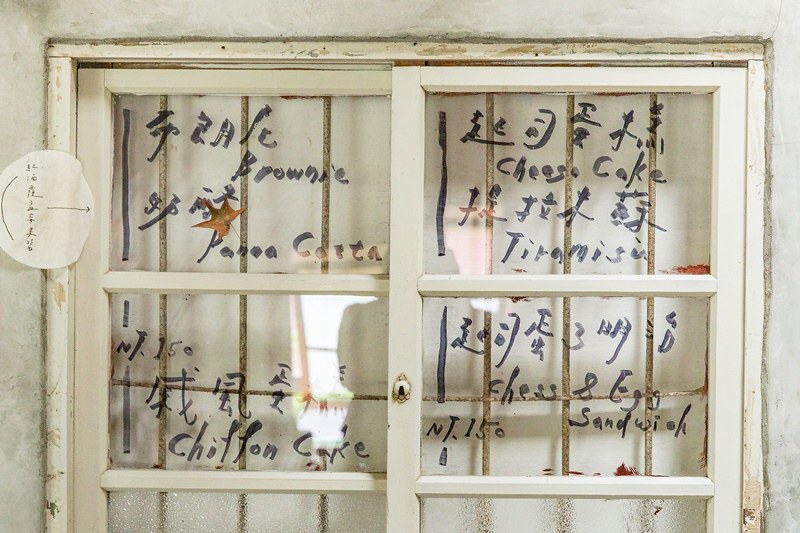 布朗尼
Brownie
奶酪
Panna Casta
NT.150
戚風蛋
Chiffon Cake
起司蛋糕
Cheese Cake
提拉米蘇
Tiramisu
起司蛋三明治
Chess & Egg
Sandwich
NT.150